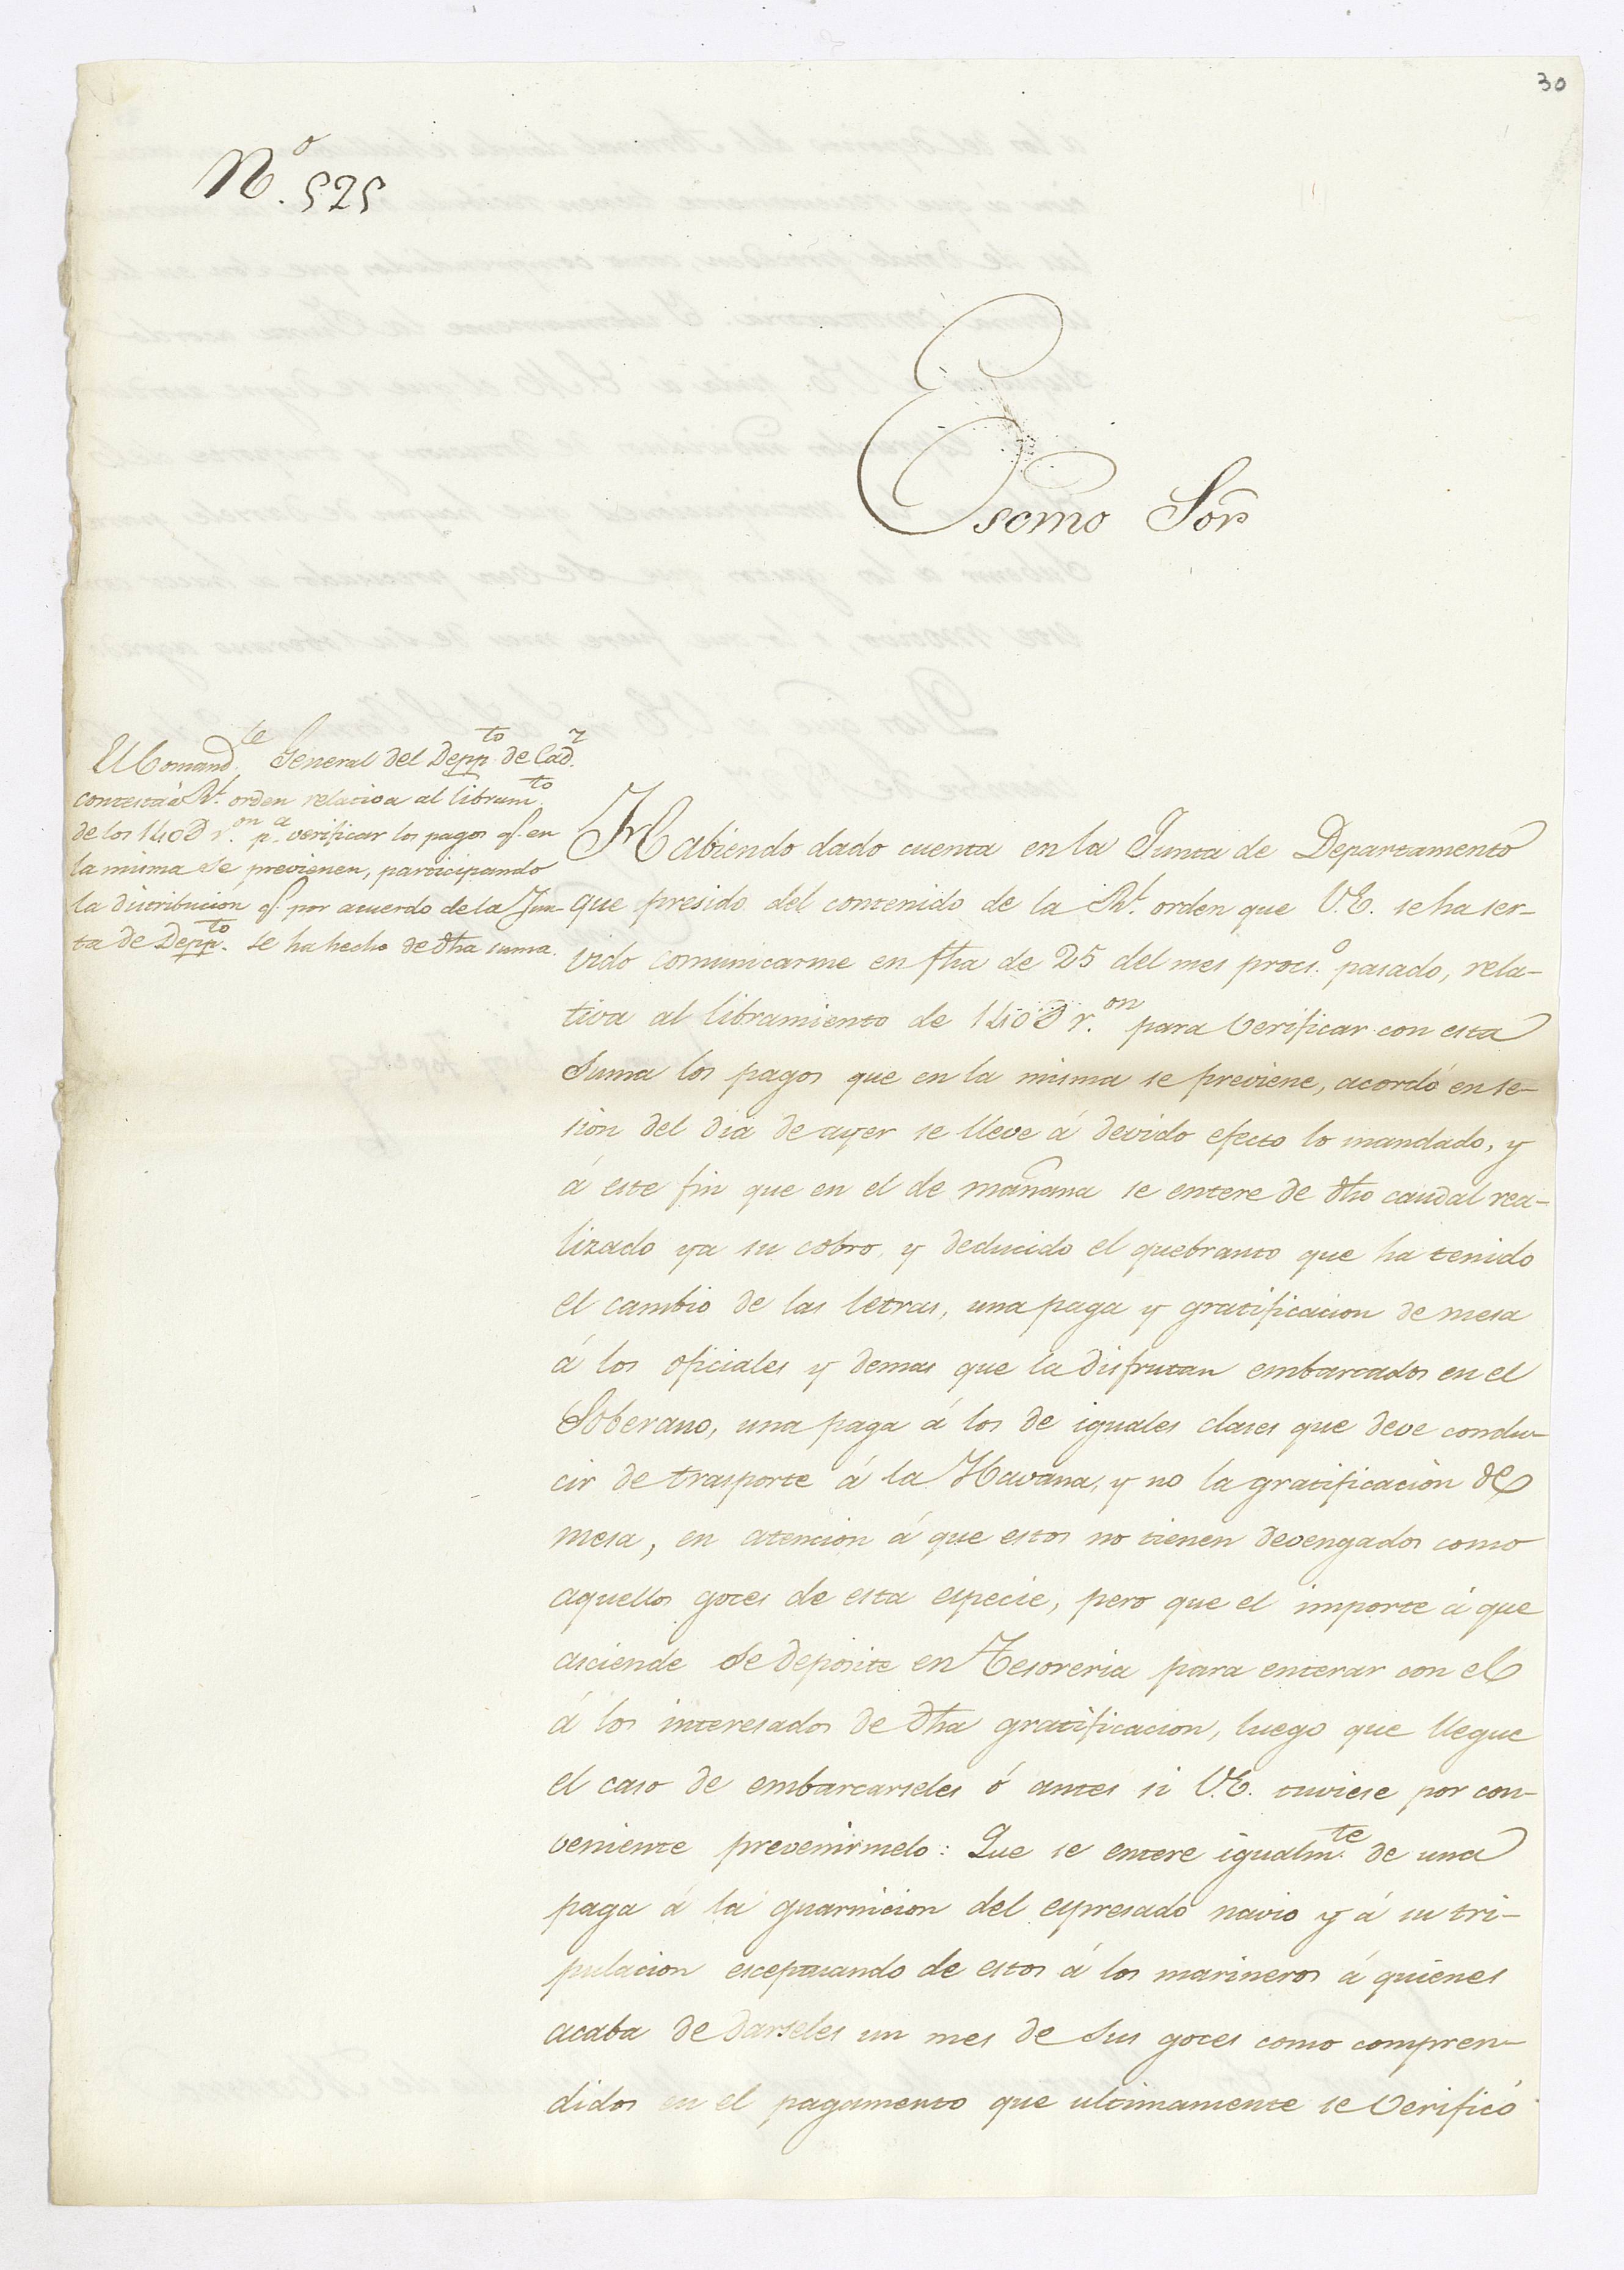 30
Nº. 525
Escmo Sor
El Comand.te General del Depp.to de Cad.z
contesta á Rl. orden relativa al libram.to
de los 140D r.on p.a verificar los pagos q.e en
la misma se previenen, participando
la distribucion q.e por acuerdo de la Jun-
ta de Depp.to se ha hecho de dha suma.
Habiendo dado cuenta en la Junta de Departamento
que presido del contenido de la Rl. orden que V.E. se ha ser-
vido comunicarme en fha de 25 del mes procs.º pasado, rela-
tiva al libramiento de 140D r.on para verificar con esta
suma los pagos que en la misma se previene, acordó en se-
sion del dia de ayer se lleve á devido efecto lo mandado, y
á este fin que en el de mañana se entere de dho caudal rea-
lizado ya su cobro, y deducido el quebranto que ha tenido
el cambio de las letras, una paga y gratificacion de mesa
á los oficiales y demas que la disfrutan embarcados en el
Soberano, una paga á los de iguales clases que deve condu-
cir de trasporte á la Havana, y no la gratificacion de
mesa, en atencion á que estos no tienen devengados como
aquellos goces de esta especie, pero que el importe á que
asciende se deposite en Tesoreria para enterar con el
á los interesados de dha gratificacion, luego que llegue
el caso de embarcarseles ó antes si V.E. tuviese por con-
veniente prevenirmelo: Que se entere igualm.te de una
paga á la guarnicion del espresado navio y á su tri-
pulacion esceptuando de estos á los marineros á quienes
acaba de darseles un mes de sus goces como compren-
didos en el pagamento que ultimamente se verificó